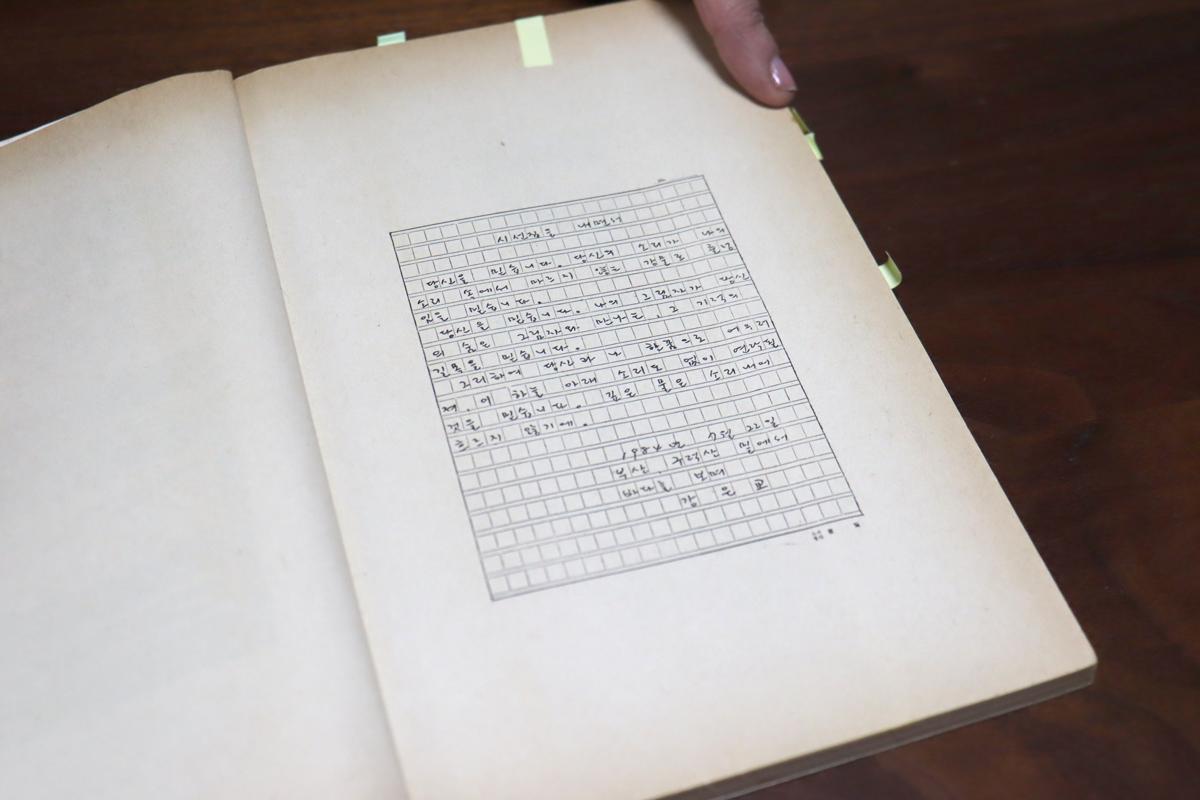 시선집을 내면서
당신을 믿습니다. 당신의 소리가 나의
소리 속에서 마르지 않는 강물로 출렁
임을 믿습니다.
당신을 믿습니다. 나의 그림자가 당신
의 숨은 그림자와 만나는, 그
길목을 믿습니다.
그리하여 당신과 나 한몸으로 어우러
져, 이 하늘 아래 소리도 없이
것을 믿습니다. 깊은 물은 소리내어
흐르지 않기에.
1984년 22일
부산, 밑에서
바다를 보며
강 은 교